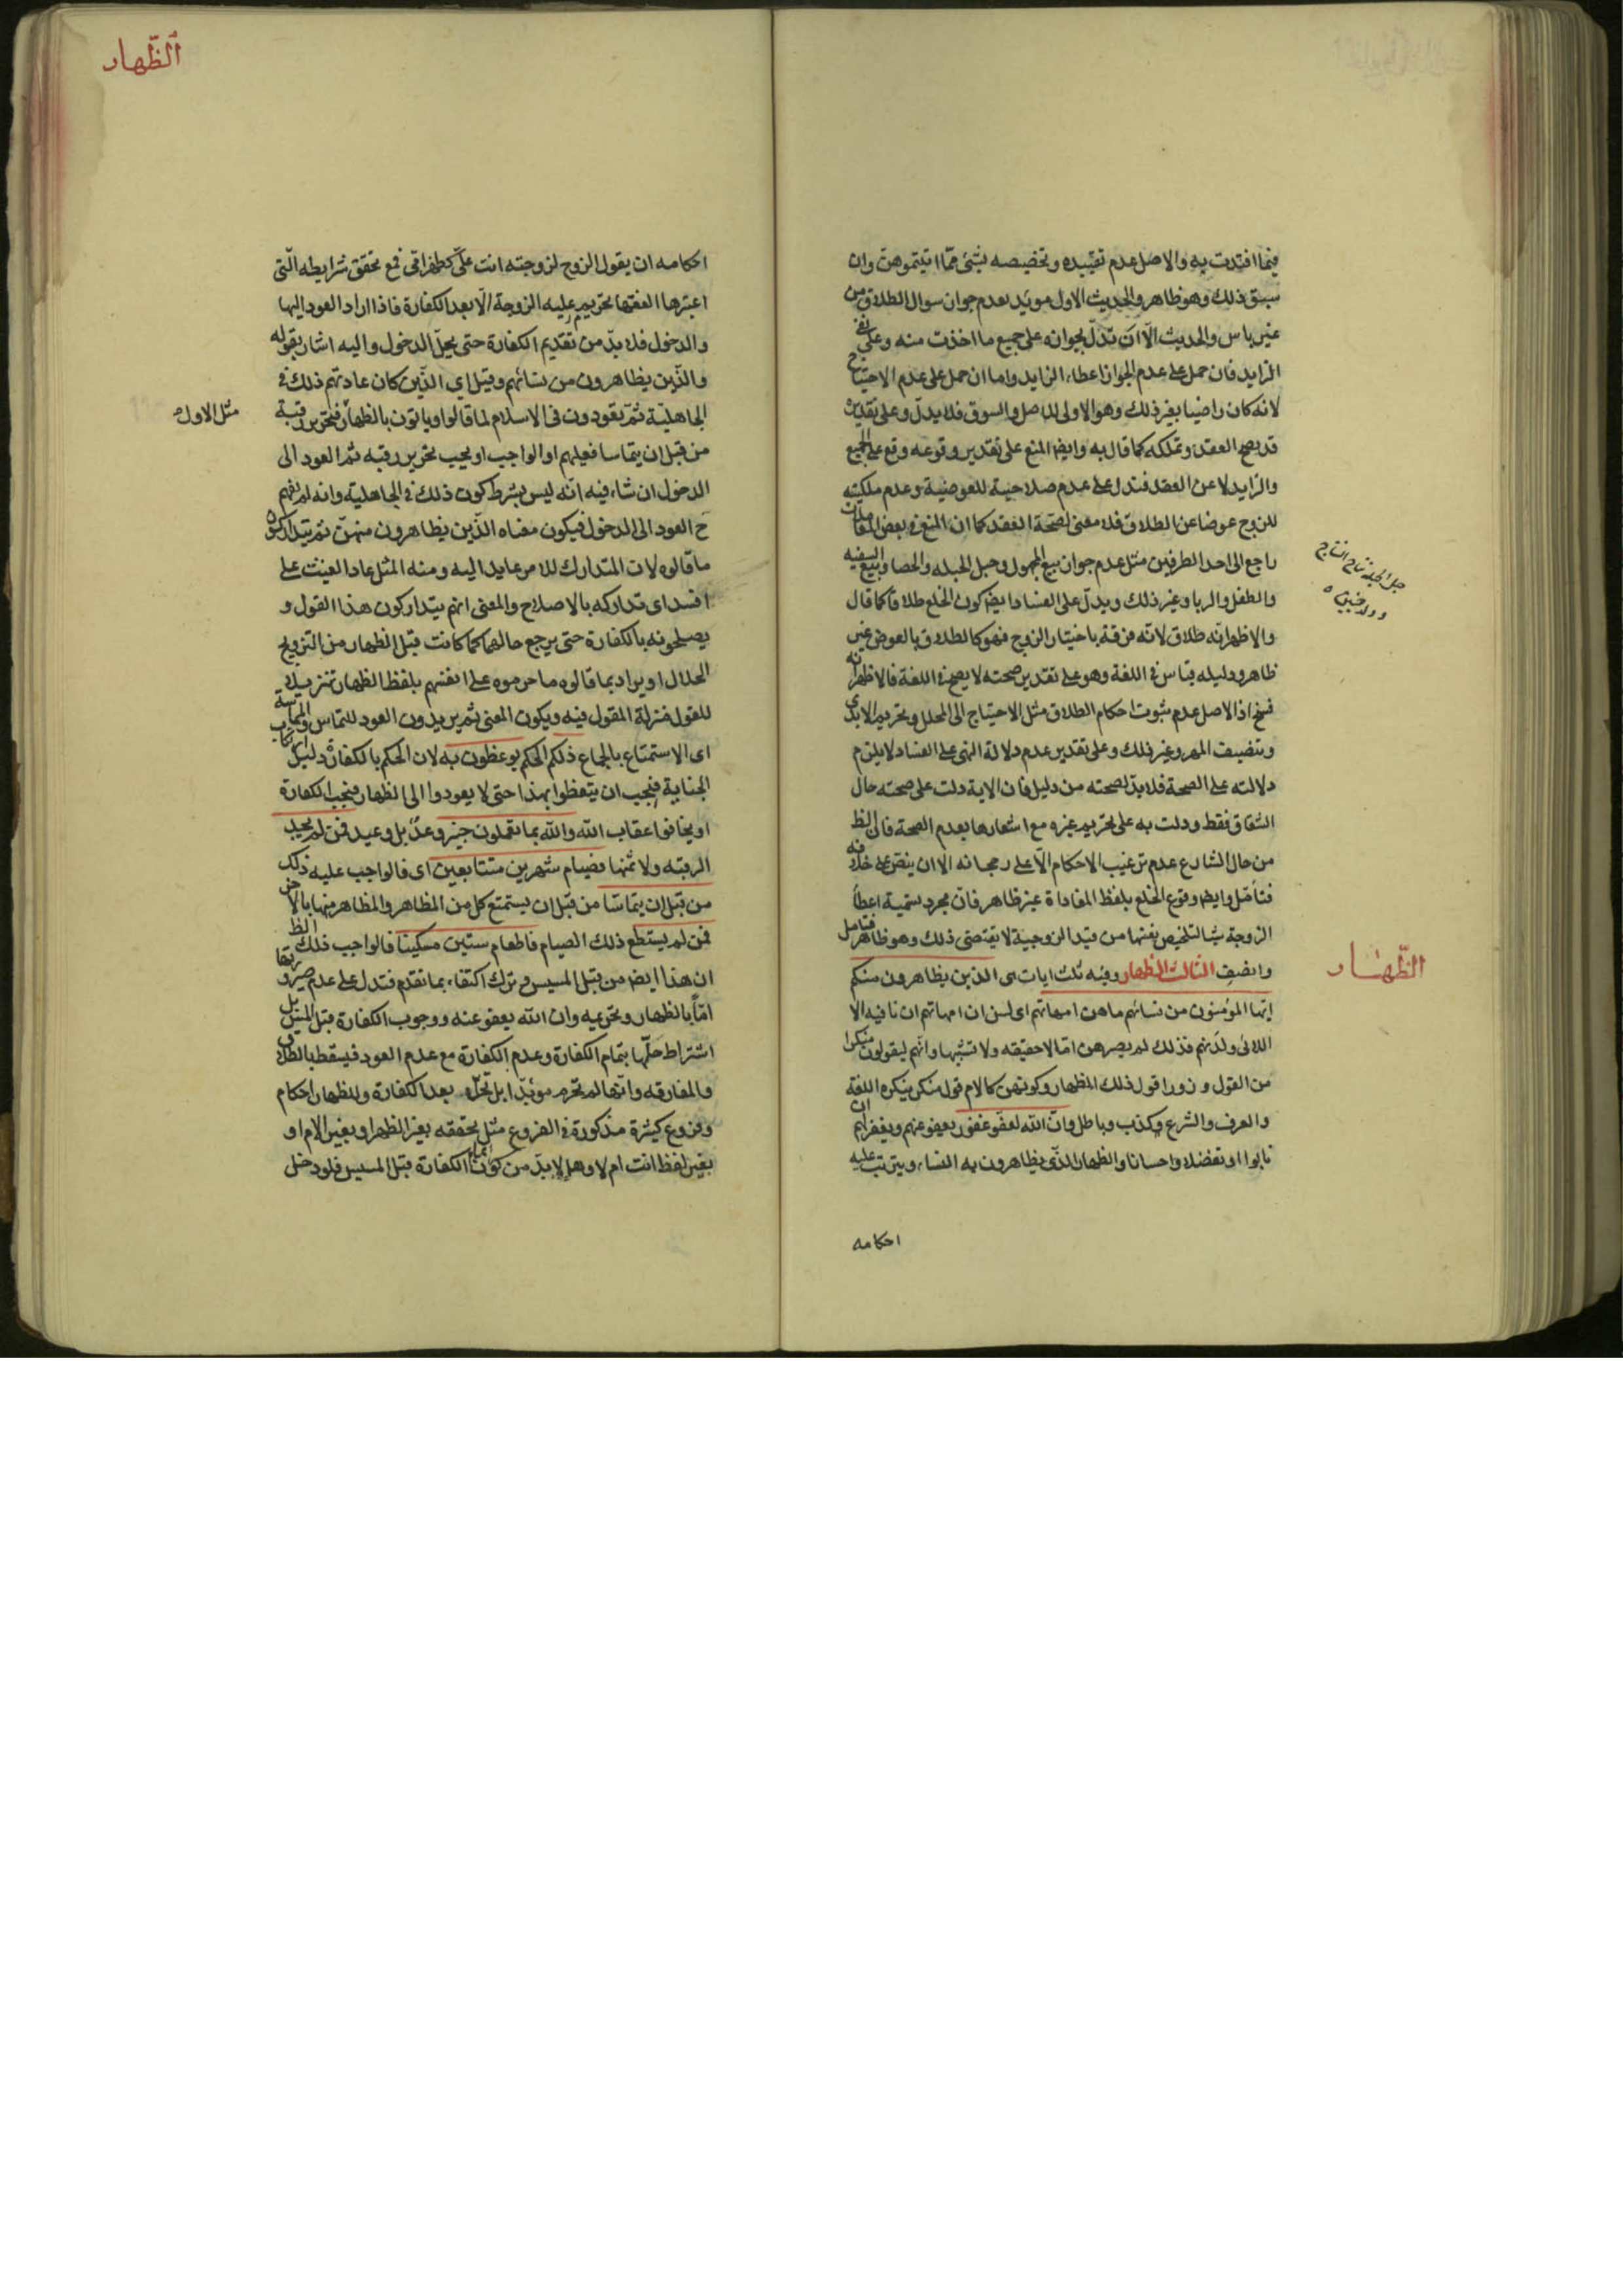 فيما افتدت به والاصل عدم تقييده وتخصيصه بشئ مما اتيتموهن وان
سبق ذلك وهو ظاهر والحديث الاول مويد لعدم جواز سوال الطلاق من
غير باس والحديث الآن تدل بجوازه على جميع ما اخذت منه وعلى نفى
الزايد فان حمل على عدم الجواز اعطاء الزايد واما ان حمل على عدم الاحتياج
لانه كان راضيا بغير ذلك وهو الاولى للاصل والسوق فلا يدل وعلى تقديره
قد يصح العقد وتملكه كما قال به وايضا المنع على تقدير وقوعه وقع على الجميع
والزايد لا عن العقد فتدل على عدم صلاحية للعوضية وعدم ملكيته
للزوج عوضا عن الطلاق فلا معنى لصحة العقد كما ان المنع في بعض المقامات
راجع الى احد الطرفين مثل عدم جواز بيع المجهول وحبل الحبله والحصا وبيع السفيه
والطفل والربا وغير ذلك ويدل على الفساد ايضا كون الخلع طلاقا كما قال
والاظهر انه طلاق لانه فرقة باختيار الزوج فهو كالطلاق بالعوض غير
ظاهر ودليله قياس في اللغة وهو على تقدير صحته لا يصح في اللغة فالاظهر انه
فسخ اذ الاصل عدم ثبوت احكام الطلاق مثل الاحتياج الى المحلل وتحريم الابدى
وتنصيف المهر وغير ذلك وعلى تقدير عدم دلالة النهى على الفساد لا يلزم
دلالته على الصحة فلا بد لصحته من دليل فان الاية دلت على صحته حال
الشقاق فقط ودلت به على تحريم غيره مع اشعارها بعدم الصحة فان الظ
من حال الشارع عدم ترغيب الاحكام الا على رجحانه الا ان ينص على خلافه
فتأمل وايضا وقوع الخلع بلفظ المفاداة غير ظاهر فان مجرد تسمية اعطأ
الزوجة شيئا لتخليص نفسها من قيد الزوجية لا يقتضى ذلك وهو ظاهر فتامل
وانصف الثالث الظهار وفيه ثلث ايات ى الذين يظاهرون منكم
ايها المؤمنون من نسائهم ماهن امهاتهم اى لسن ان امهاتهم ان نافيه الا
اللائى ولدنهم فذلك لم يصرهن اما لا حقيقه ولا تشبها وانهم ليقولون منكرا
من القول وزورا قول ذلك المظهار وكونهن كالام قول منكر ينكره اللغة
والعرف والشرع وكذب وباطل وان الله لعفو غفور يعفو عنهم ويغفر لهم ان
تابوا او تفضلا واحسانا والظهار الذى يظاهرون به النساء ويترتب عليه
احكامه
حبل الحبله نتاج النتاج
وولد جنين ه
الظهار
الظهار
احكامه ان يقول الزوج لزوجته انت على كظهر امى فمع تحقق شرايطه التى
اعتبرها الفقها تحريم عليه الزوجة الا بعد الكفارة فاذا اراد العود اليها
والدخول فلا بد من تقديم الكفارة حتى يحل الدخول واليه اشار بقوله
والذين يظاهرون من نسائهم وقيل اي الذين كان عادتهم ذلك في
الجاهلية ثم يعودون فى الاسلام لما قالوا وياتون بالظهار فتحرير رقبة
من قبل ان يتماسا فعليهم او الواجب او يجب تحرير رقبه ثم العود الى
الدخول ان شاء فيه انه ليس بشرط كون ذلك في الجاهلية وانه لم يفهم
ح العود الى الدخول فيكون معناه الذين يظاهرون منهن ثم يتداركون
ما قالوه لان المتدارك للامر عايد اليه ومنه المثل عاد الغيث على
افسد اى تداركه بالاصلاح والمعنى انهم يتداركون هذا القول و
يصلحونه بالكفارة حتى يرجع حالهما كما كانت قبل الظهار من التزويج
الحلال او يراد بما قالوه ما حرموه على انفسهم بلفظ الظهار تنزيلا
للقول منزلة المقول فيه ويكون المعنى ثم يريدون العود للتماس والمماسة
اى الاستمتاع بالجماع ذلكم الحكم يوعظون به لان الحكم بالكفارة دليل ارتكاب
الجناية فيجب ان يتعظوا بهذا حتى لا يعودوا الى الظهار فتجب الكفارة
او يخافوا عقاب الله والله بما تعملون خبير وعد بل وعيد فمن لم يجد
الرقبه ولا ثمنها فصيام شهرين متتابعين اى فالواجب عليه ذلك
من قبل ان يتماسا من قبل ان يستمتع كل من المظاهر والمظاهر منها بالاخر
فمن لم يستطع ذلك الصيام فاطعام ستين مسكينا فالواجب ذلك الظ
ان هذا ايضا من قبل المسيس وترك اكتفاء بما تقدم فتدل على عدم صيرورتها
امّا بالظهار وتحريمه وان الله يعفو عنه ووجوب الكفارة قبل المس بل
اشتراط حلها بتمام الكفارة وعدم الكفارة مع عدم العود فيسقط بالطلاق
والمفارقه وانها لم تحرم موبدا بل تحل بعد الكفارة وللظهار احكام
وفروع كثيرة مذكورة في الفروع مثل تحققه بغير الظهر او بغير الام او
بغير لفظ انت ام لا وهل لا بد من كون الكفارة قبل المسيس فلو دخل
مثل الاول